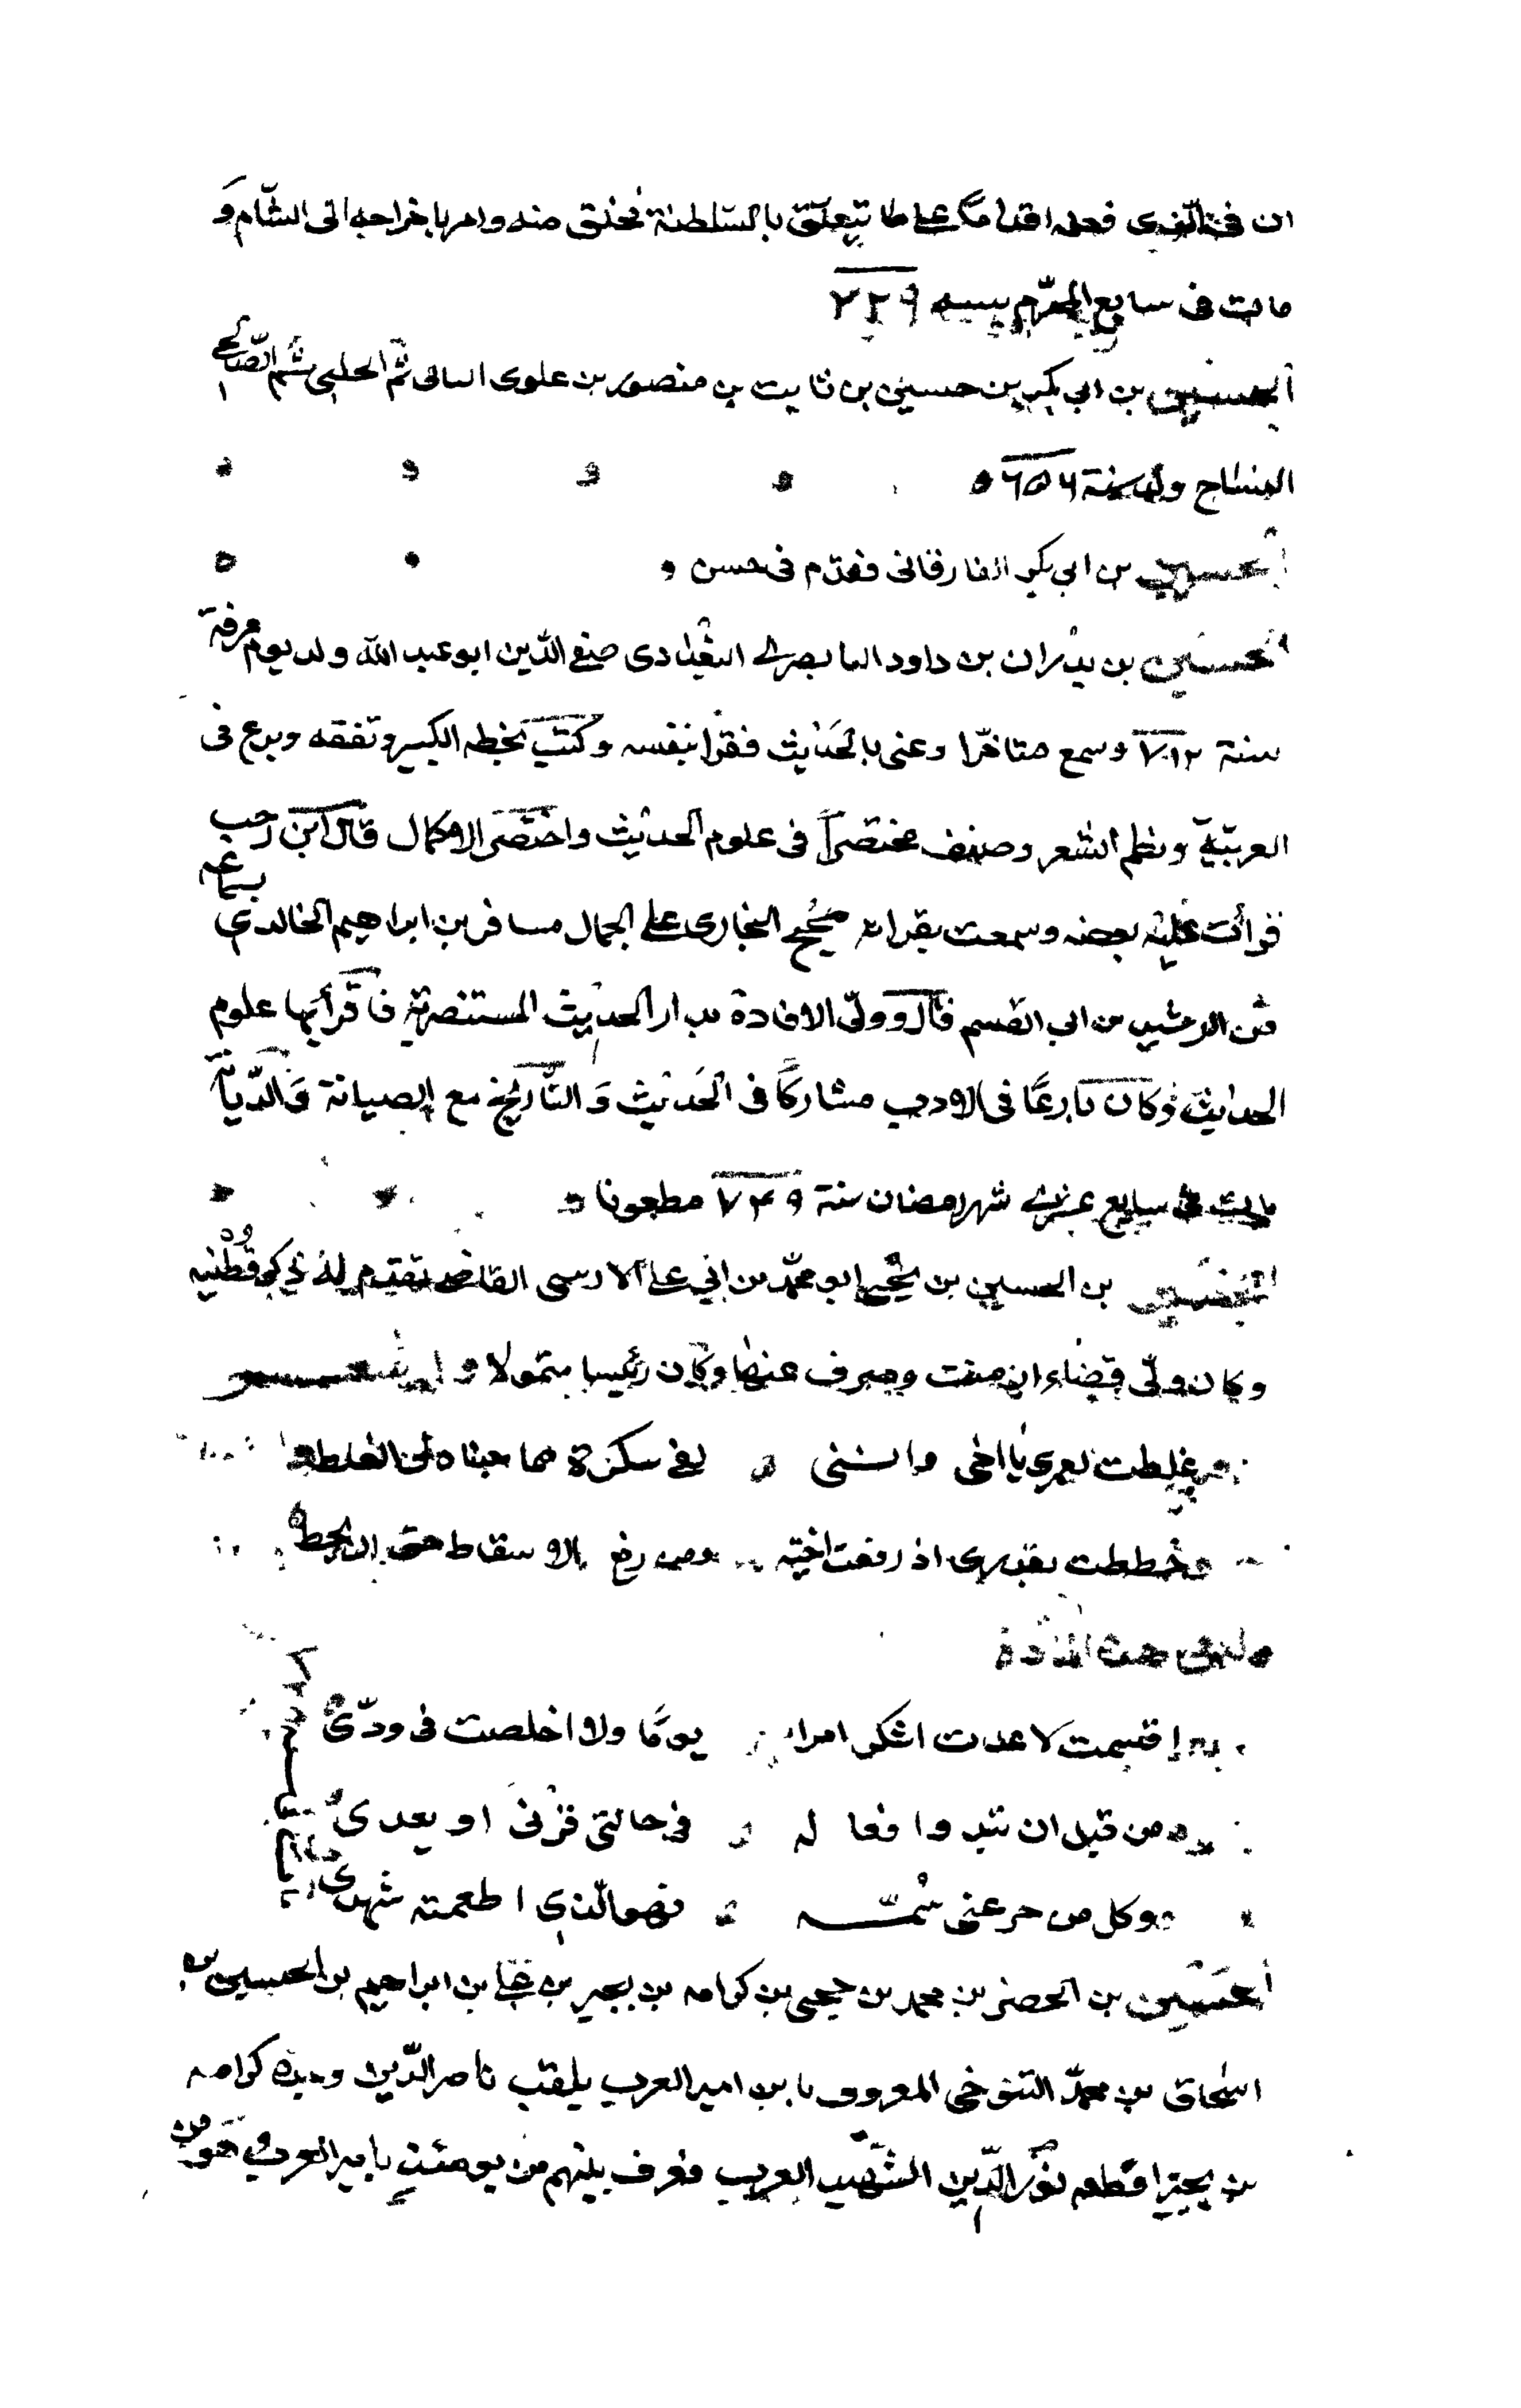 ان في الذي فعله اقداما على ما يتعلق بالسلطنة فحنق منه وامر باخراجه الى الشام و
مات في سابع المحرم سنة ٧٢٩
الحسين بن ابي بكر بن حسين بن ثابت بن منصور بن علوي البالي ثم الحلبي ثم الصالحي
النساج ولد سنة ٦٥٦
الحسين بن ابي بكر الفارقاني فقدم في حسن
الحسين بن بدران بن داود البابصري البغدادي صفي الدين ابو عبد الله ولد يوم عرفة
سنة ٧١٢ وسمع متاخرا وعني بالحديث فقرا بنفسه وكتب بخطه الكثير وتفقه وبرع في
العربية ونظم الشعر وصنف مختصرا في علوم الحديث واختصر الاكمال قال ابن رجب
قرأت عليه بعضه وسمعت بقراءته صحيح البخاري على الجمال مسافر بن ابراهيم الخالدي بسماعه
من الرشيد بن ابي القسم قال وولي الافادة بدار الحديث المستنصرية فاقرأ بها علوم
الحديث وكان بارعا في الادب مشاركا في الحديث والتاريخ مع الصيانة والديانة
مات في سابع عشري شهر رمضان سنة ٧٤٩ مطعونا
بن الحسين بن يحيى ابو محمد بن ابي علي الارمنتي القاضي تقدم له ذكر قطنبه
وكان ولي قضاء ارمنت وصرف عنها وكان رئيسا متمولا
غلطت لعمري يا اخي وانني لفي سكرة مما جناه لي الغلط
وخططت بقدري اذ رفعت اخية ومن رفع الاسقاط حق ان يحط
وله في هذه المادة
اقسمت لا عدت اشكر امرا يوما ولا اخلصت في ودي
من قبل ان تبدوا فعاله في حالتي قربي او بعدي
وكل من جرعني سمه فهو الذي اطعمته شهدي
الحسين بن الخضر بن محمد بن حجي بن كرامه بن بحير بن علي بن ابراهيم بن الحسين بن
اسحاق بن محمد التنوخي المعروف بابن امير العرب يلقب ناصر الدين وجده كرامه
بن بحير اقطعه نور الدين الشهيد العرب فعرف بينهم من يومئذ بامير العرب وهو من